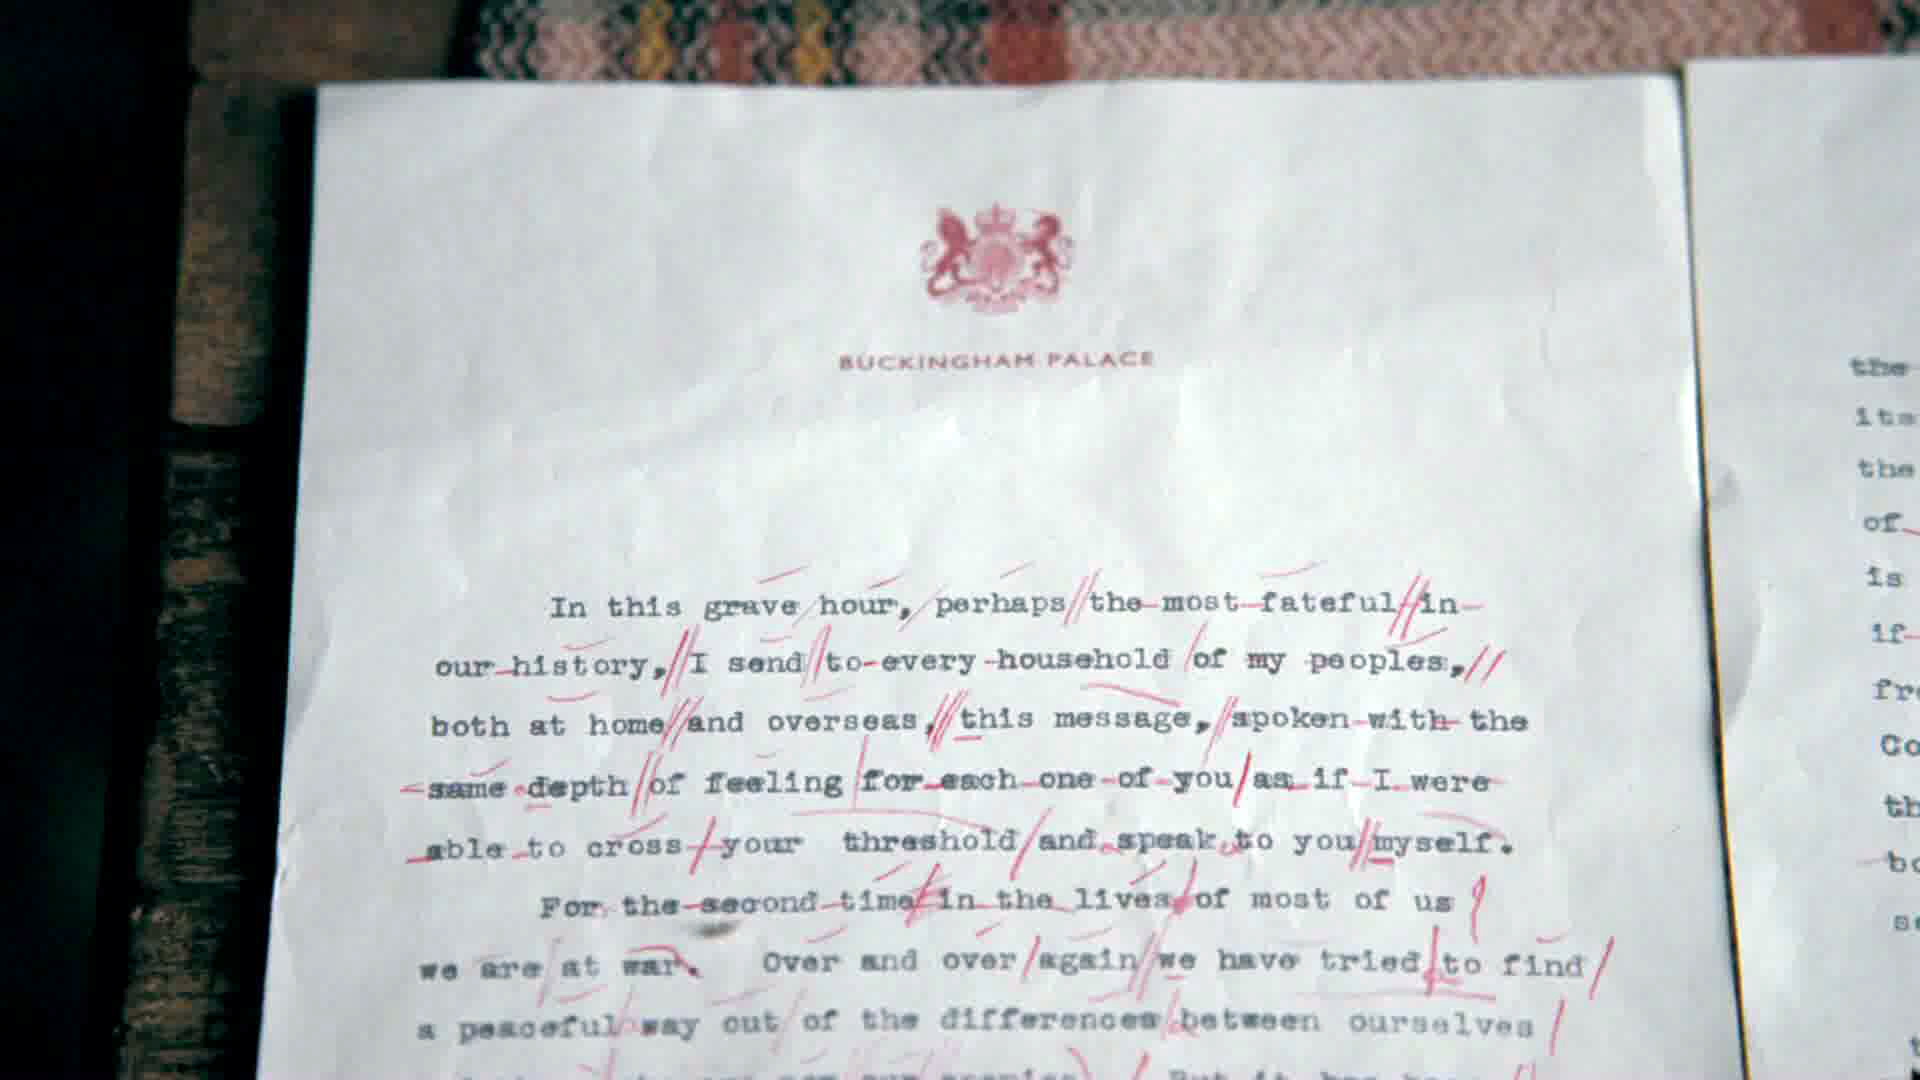 BUCKINGHAM PALACE
In this grave hour, perhaps the most fateful in
our history, I send to every household of my peoples,
both at home and overseas, this message, spoken with the
same depth of feeling for each one of you as if I were
able to cross your threshold and speak to you myself.
For the second time in the lives of most of us
we are at war. Over and over again we have tried to find
a peaceful way out of the differences between ourselves
But it has been
the
its
the
of
is
if
Co
th